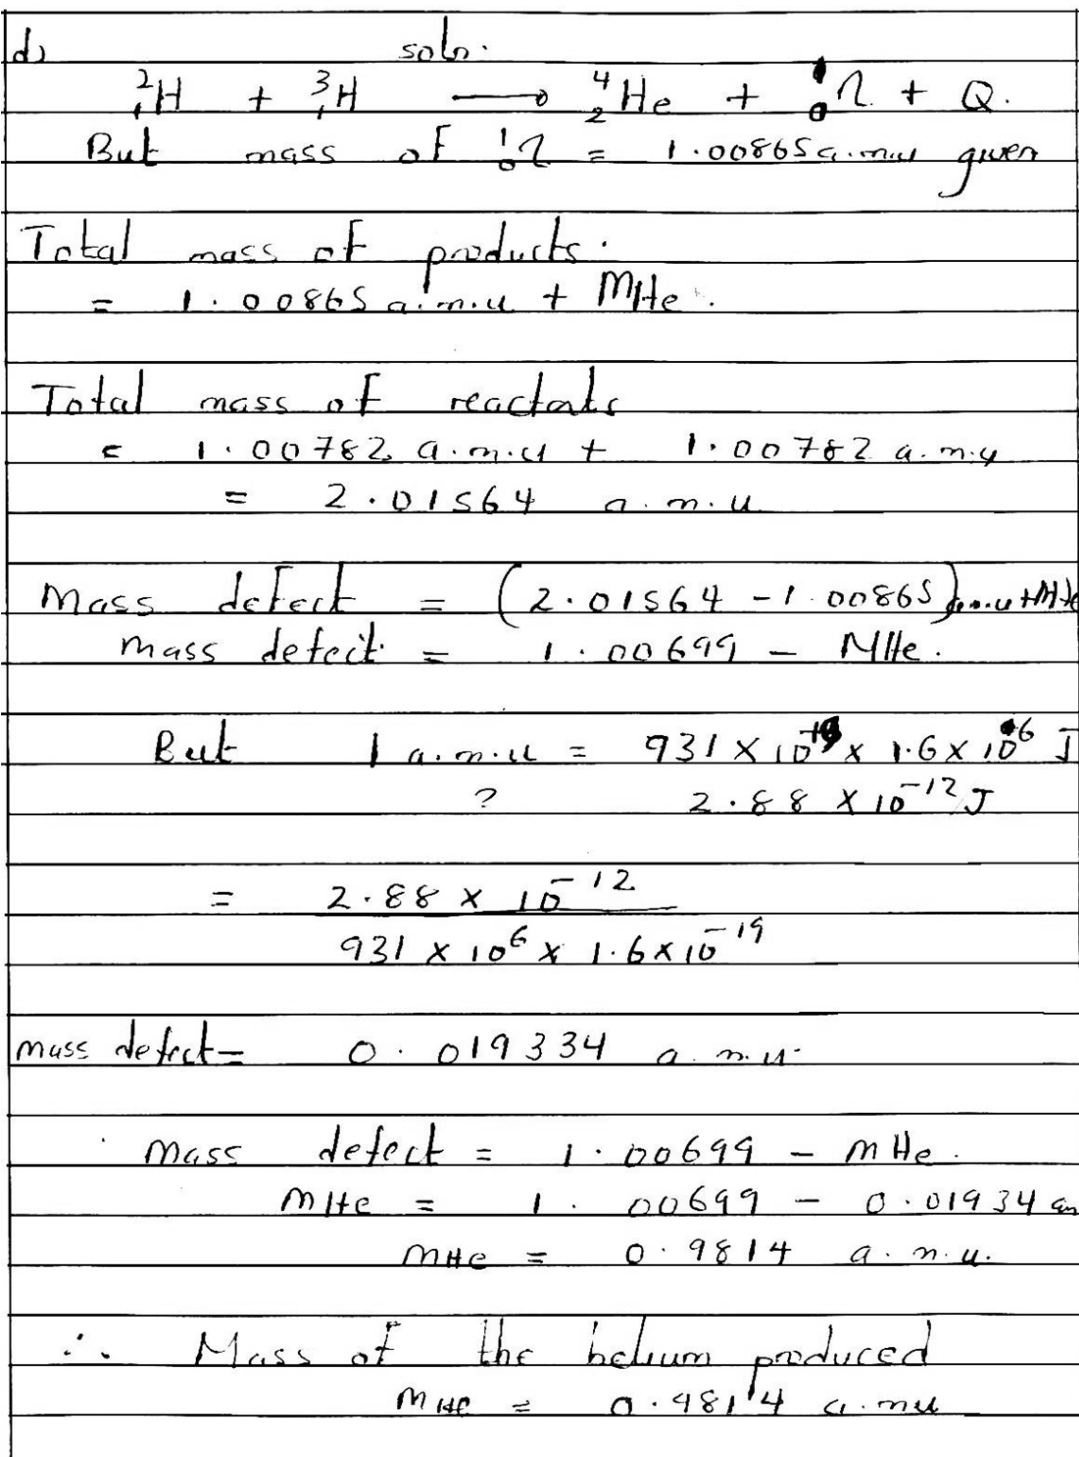 d) soln.
²₁H + ³₁H ⟶ ⁴₂He + ¹₀n + Q.
But mass of ¹₀n = 1.00865 a.m.u given
Total mass of products.
= 1.00865 a.m.u + MHe.
Total mass of reactants
= 1.00782 a.m.u + 1.00782 a.m.u
= 2.01564 a.m.u
Mass defect = (2.01564 - 1.00865) a.m.u + MHe
mass defect = 1.00699 - MHe.
But 1 a.m.u = 931 × 10⁻¹⁹ × 1.6 × 10⁶ J
? 2.88 × 10⁻¹² J
= 2.88 × 10⁻¹²
931 × 10⁶ × 1.6 × 10⁻¹⁹
mass defect = 0.019334 a.m.u.
Mass defect = 1.00699 - mHe.
mHe = 1.00699 - 0.01934 am
mHe = 0.9814 a.m.u.
∴ Mass of the helium produced
mHe = 0.9814 a.mu